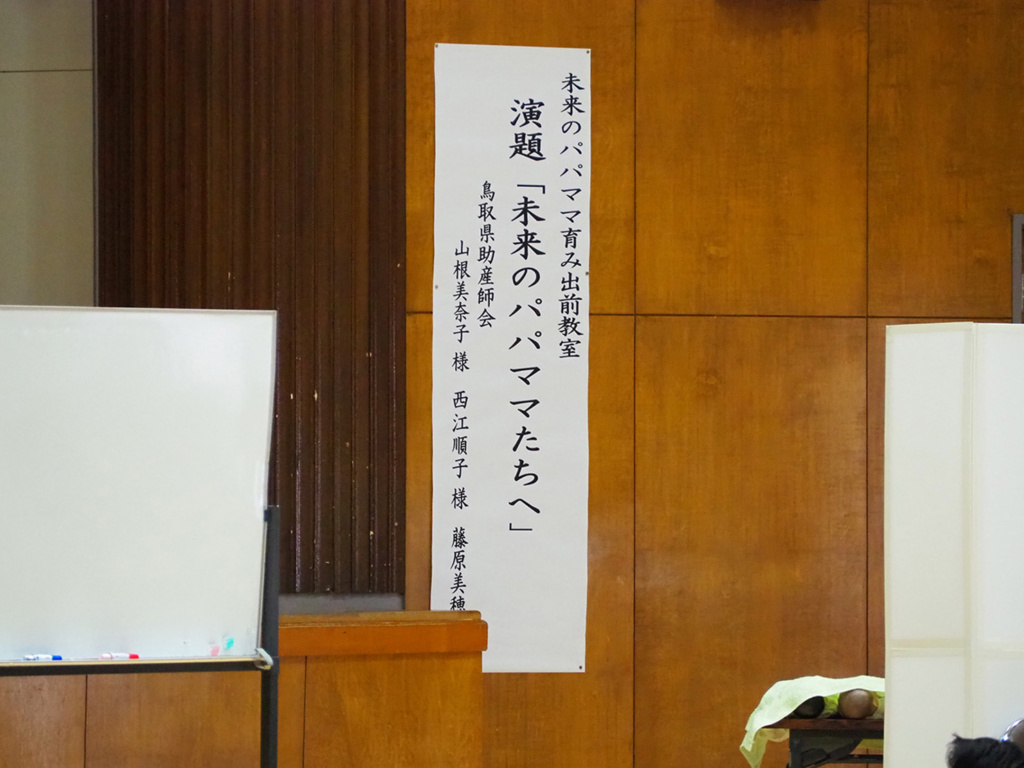 未来のパパママ育み出前教室
演題「未来のパパママたちへ」
鳥取県助産師会
山根美奈子 様 西江順子 様 藤原美穂